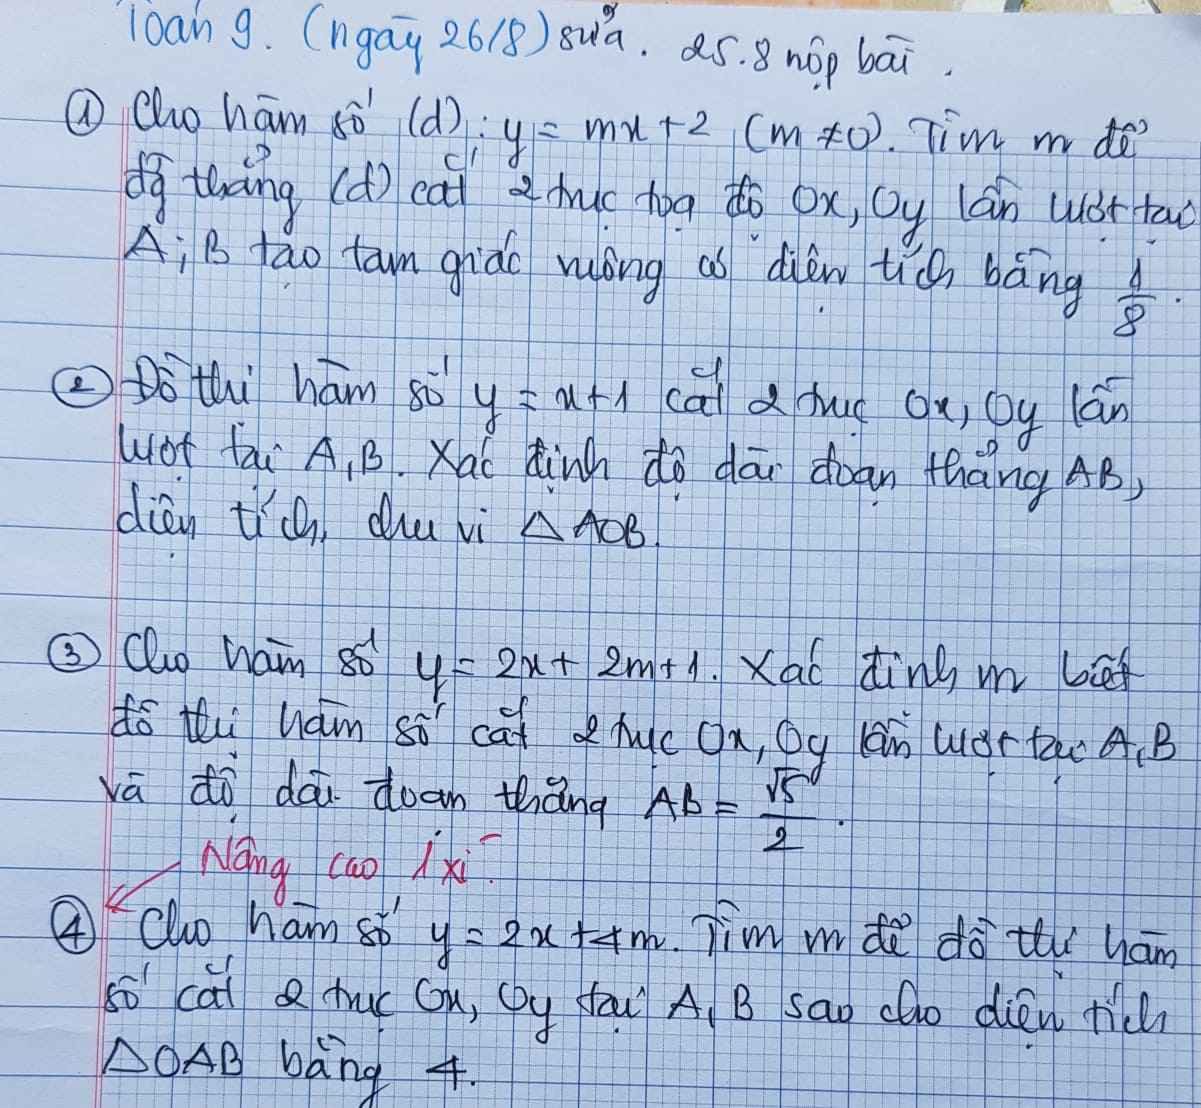 Toán 9. (ngày 26/8) sửa. 25.8 nộp bài.
① Cho hàm số (d): y = mx + 2 (m ≠ 0). Tìm m để
đg thẳng (d) cắt 2 trục toạ độ Ox, Oy lần lượt tại
A; B tạo tam giác vuông có diện tích bằng 1/8.
② Đồ thị hàm số y = x + 1 cắt 2 trục Ox, Oy lần
lượt tại A, B. Xác định độ dài đoạn thẳng AB,
diện tích, chu vi △AOB.
③ Cho hàm số y = 2x + 2m + 1. Xác định m biết
đồ thị hàm số cắt 2 trục Ox, Oy lần lượt tại A, B
và độ dài đoạn thẳng AB = √5/2.
Nâng cao 1 xí.
④ Cho hàm số y = 2x + 4m. Tìm m để đồ thị hàm
số cắt 2 trục Ox, Oy tại A, B sao cho diện tích
△OAB bằng 4.